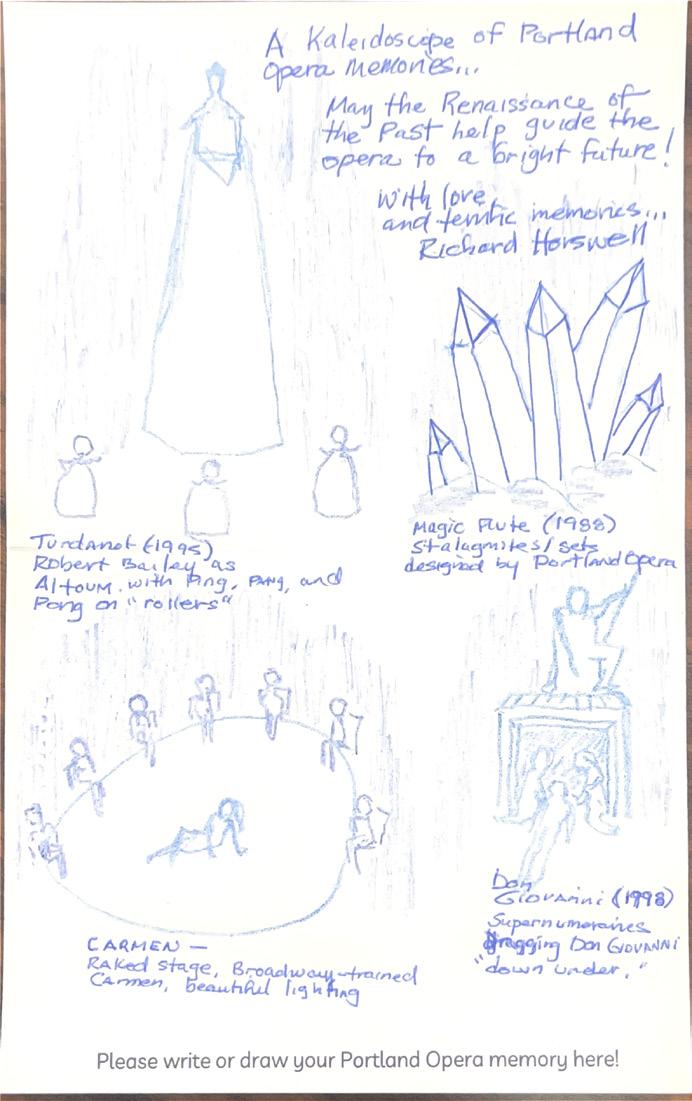 A Kaleidoscope of Portland
Opera memories...
May the Renaissance of
the Past help guide the
opera to a bright future!
With love,
and terrific memories...
Richard Horswell
Turdanot (1995)
Robert Bailey as
Altoum. with Ping, Pang, and
Pong on "rollers"
Magic Flute (1988)
Stalagmites/sets
designed by Portland Opera
CARMEN —
Raked stage, Broadway-trained
Carmen, beautiful lighting
Don
Giovanni (1998)
Supernumeraries
dragging Don Giovanni
"down under."
Please write or draw your Portland Opera memory here!